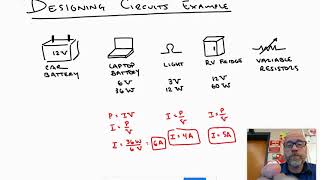 DESIGNING CIRCUITS EXAMPLE
12V
CAR BATTERY
LAPTOP BATTERY
6V
36W
LIGHT
3V
12W
RV FRIDGE
12V
60W
VARIABLE RESISTORS
P = IV
I = P/V
I = 36W/6V = 6A
I = P/V
I = 4A
I = P/V
I = 5A